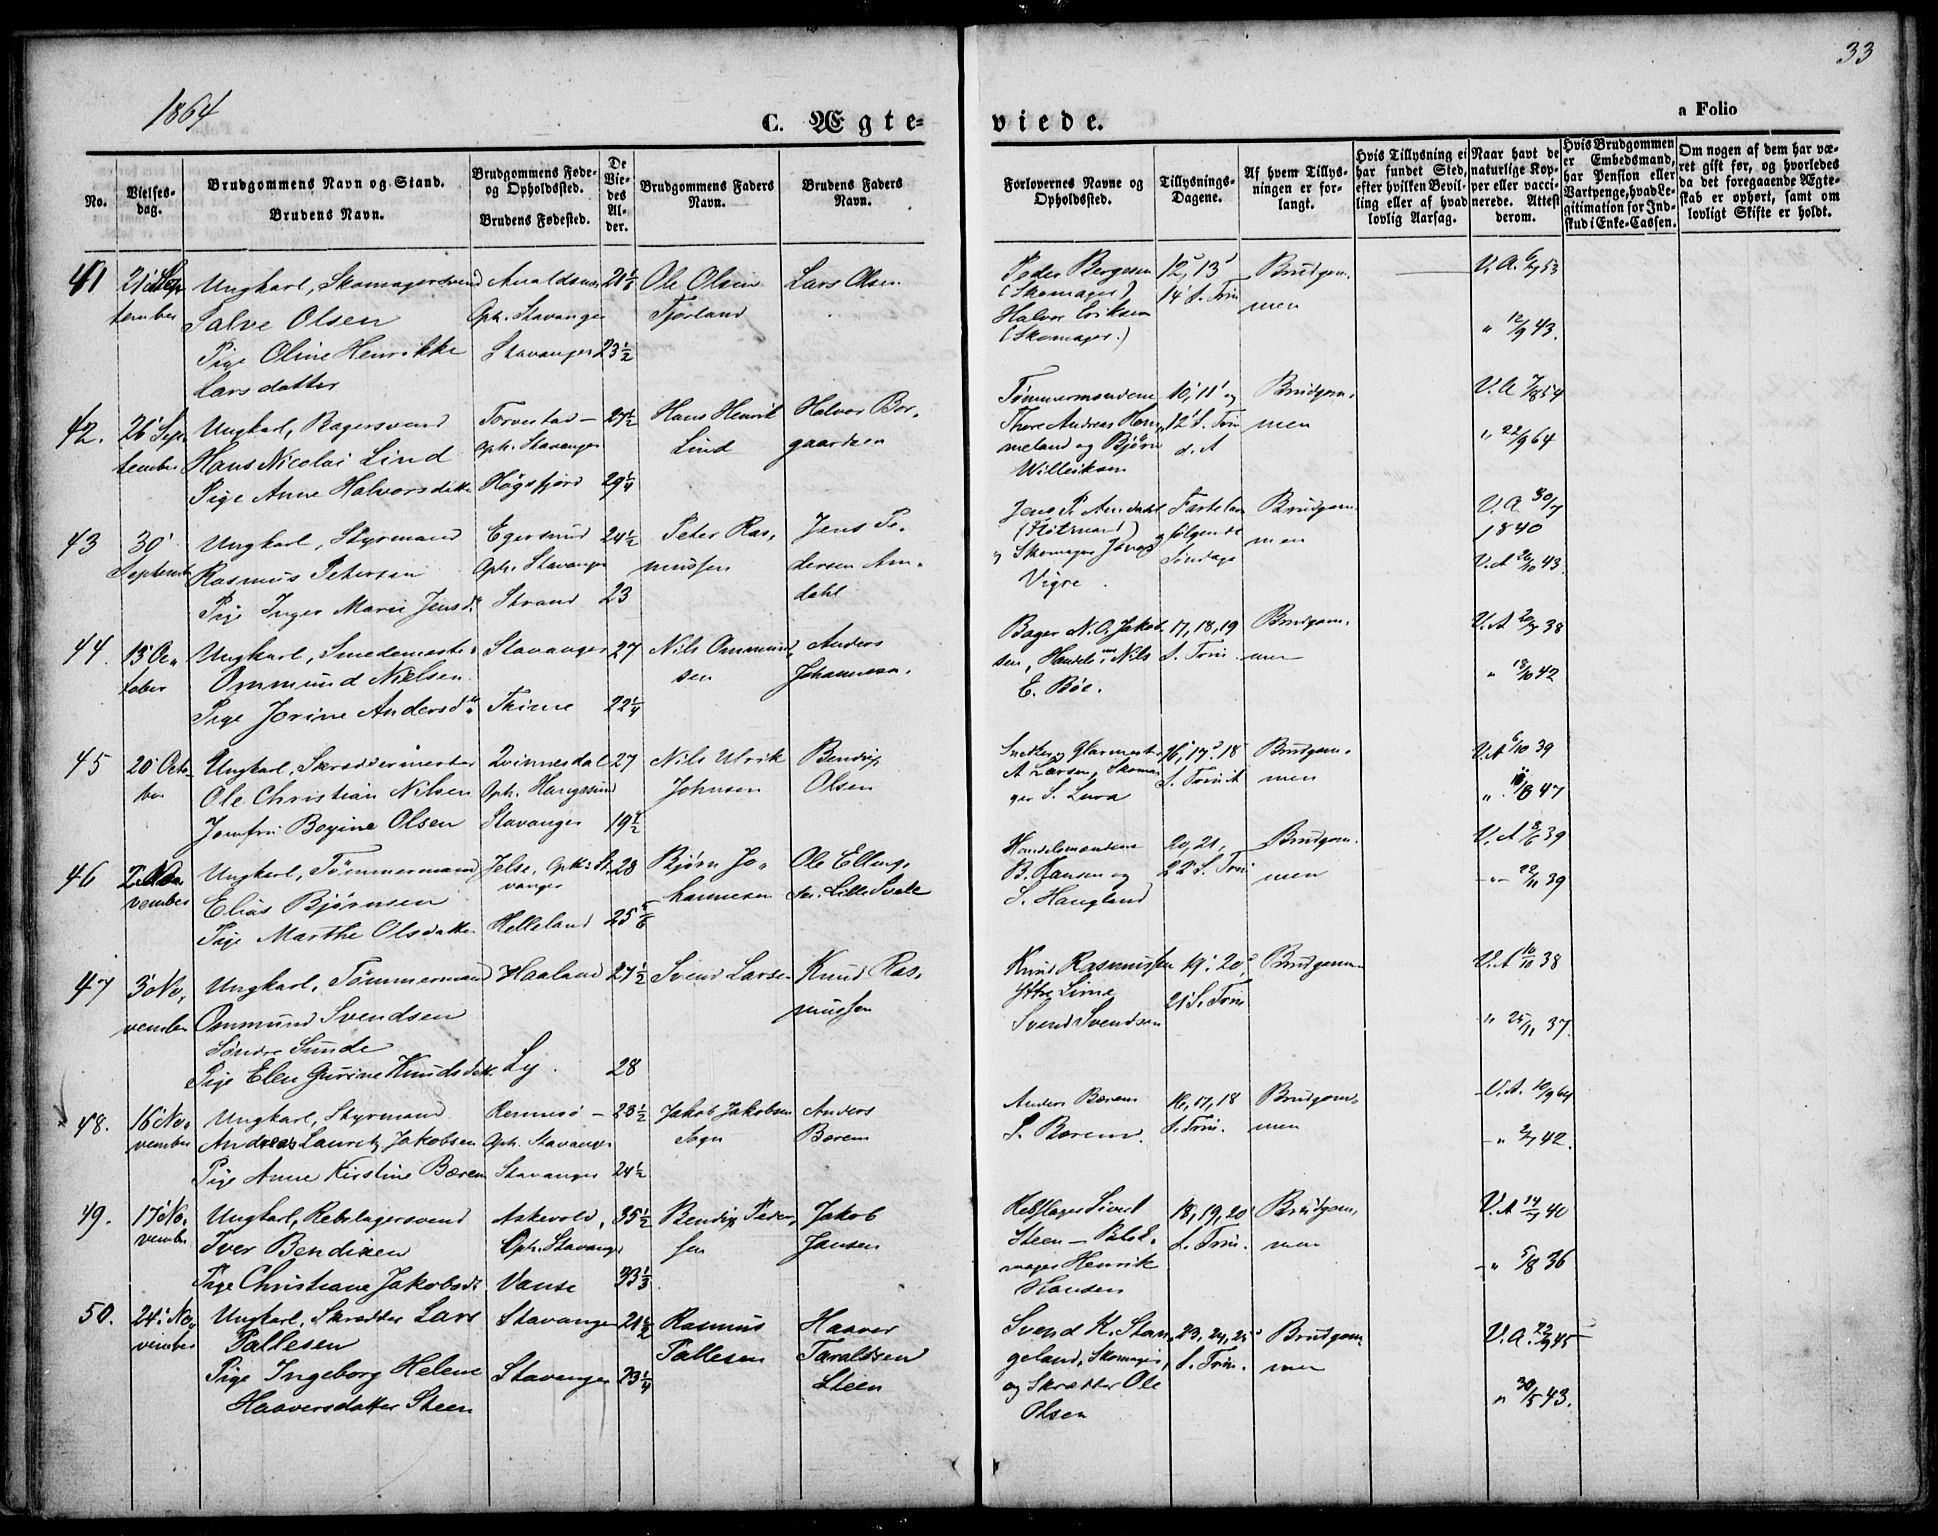 1864
33
C. Ægte-
viede.
a Folio
No.
Vielses-
dag.
Brudgommens Navn og Stand.
Brudens Navn.
Brudgommens Føde-
og Opholdssted.
Brudens Fødested.
De
Vie-
des
Al-
der.
Brudgommens Faders
Navn.
Brudens Faders
Navn.
Forlovernes Navne og
Opholdssted.
Tillysnings-
Dagene.
Af hvem Tillys-
ningen er for-
langt.
Hvis Tillysning ei
har fundet Sted,
efter hvilken Bevil-
ling eller af hvad
lovlig Aarsag.
Naar havt de
naturlige Kop-
per eller vacci-
nerede. Attest
derom.
Hvis Brudgommen
er Embedsmand,
har Pension eller
Vartpenge, hvad Le-
gitimation for Ind-
skud i Enke-Cassen.
Om nogen af dem har væ-
ret gift før, og hvorledes
da det foregaaende Ægte-
skab er ophørt, samt om
lovligt Skifte er holdt.
41
21 Sep
tember
Ungkarl, Skomagersvend
Salve Olsen
Pige Oline Henrikke
Larsdatter
Oph. Stavanger
Stavanger
21 1/2
23 1/2
Ole Olsen
Tjorland
Lars Olsen
Peder Bergesen
(Skomager)
Halvor Eriksen
(Skomager.)
12, 13
14 S. Trin
Brudgom-
men
V. A. 6/9 53
" 12/9 43.
42.
26 Sep
tember
Ungkarl, Bagersvend
Hans Nicolai Lind
Pige Anne Halvorsdatte
Torvestad -
oph. Stavanger
Høgsfjord
27 1/2
29 1/4
Hans Henrik
Lind
Halvor Bor-
gaardsen
Tømmermændene
Thore Andreas Hom-
meland og Bjørn
Willeiksen
10, 11 og
12 S. Trin
d. A
Brudgom-
men
V. A 7/8 54
" 22/9 64
43
30
September
Ungkarl, Styrmand
Rasmus Petersen
Pige Inger Marie Jensd.
Egersund
Oph. Stavanger
Strand
24 1/2
23
Peter Ras-
mussen
Jens Pe-
dersen Am-
dahl
Jens P. Amdahl
og Skomager Jonas
Vigre.
følgende
Søndage
Brudgom-
men
V. A 30/7
1840
V. A 26/10 43.
44.
13 Oc-
tober
Ungkarl, Smedemester
Ommund Nielsen
Pige Jorine Andersd.
Stavanger
Thime
27
22 1/4
Nils Ommund-
sen
Anders
Johannesen.
Bager N. O. Jakob-
sen, Handelsm. Nils
E. Bøe.
17, 18, 19
S. Trin.
Brudgom-
men
V. A 20/7 38
" 18/10 42
45
20 Octo
ber
Ungkarl, Skræddermester
Ole Christian Nilsen
Jomfru Bogine Olsen
Qvinnesdal
Oph. Haugesund
Stavanger
27
19 1/2
Nils Ulrik
Johnsen
Bendix
Olsen
Snekker og Glarmester
A Larsen, Skoma-
ger S. Lura
16, 17, 18
S. Trin A
Brudgom-
men
V. A 6/10 39
" 10/8 47
46
2 No
vember
Ungkarl, Tømmermand
Elias Bjørnsen
Pige Marthe Olsdatter
Jelse, Oph: St-
vanger
Helleland
28
25 5/6
Bjørn Jo-
hannesen
Ole Elling-
sen Lille Svele
Handelsmændene
B. Hansen og
S. Haugland
20, 21,
22 S. Trin
Brudgom-
men
V. A 8/6 39
-"- 22/11 39
47
3 No-
vember
Ungkarl, Tømmermand
Ommund Svendsen
Søndre Sunde
Pige Elen Gurine Knudsdatt.
Haaland
Ly.
27 1/2
28
Svend Larsen
Knud Ras-
mussen
Knud Rasmussen
Ytre Lime
Svend Svendsen
19, 20,
21 S. Trin
Brudgom-
men
V. A 10/10 38
" 25/11 37.
48.
16 No-
vember
Ungkarl, Styrmand
Andreas Lauritz Jakobsen
Pige Anne Kirstine Bærem
Rennesø -
Oph. Stavanger
Stavanger
23 1/2
24 1/2
Jakob Jakobsen
Sogn
Anders
Bærem
Anders Bærem
S. Bærem.
16, 17, 18
S. Trin.
Brudgom-
men
V. A. 10/9 64
-" 2/7 42.
49.
17 No-
vember
Ungkarl, Rebslagersvend
Iver Bendixen
Pige Christiane Jakobsd.
Askevold,
Oph. Stavanger
Vanse
35 1/2
33 1/3
Bendix Peder-
sen
Jakob
Jansen
Rebslager Sivert
Steen - Blok-
mager Henrik
Hansen
18, 19, 20
S. Trin.
Brudgom-
men
V. A 14/7 40
-" 5/8 36
50.
24 No-
vember
Ungkarl, Skrædder Lars
Pallesen
Pige Ingeborg Helene
Haaversdatter Steen
Stavanger
Stavanger
21 1/2
23 1/4
Rasmus
Pallesen
Haaver
Taraldsen
Steen
Svend K. Stan-
geland, Skomager,
og Skrædder Ole
Olsen
23, 24, 25
S. Trin.
Brudgom-
men
V. A. 22/9 45
" 30/5 43.